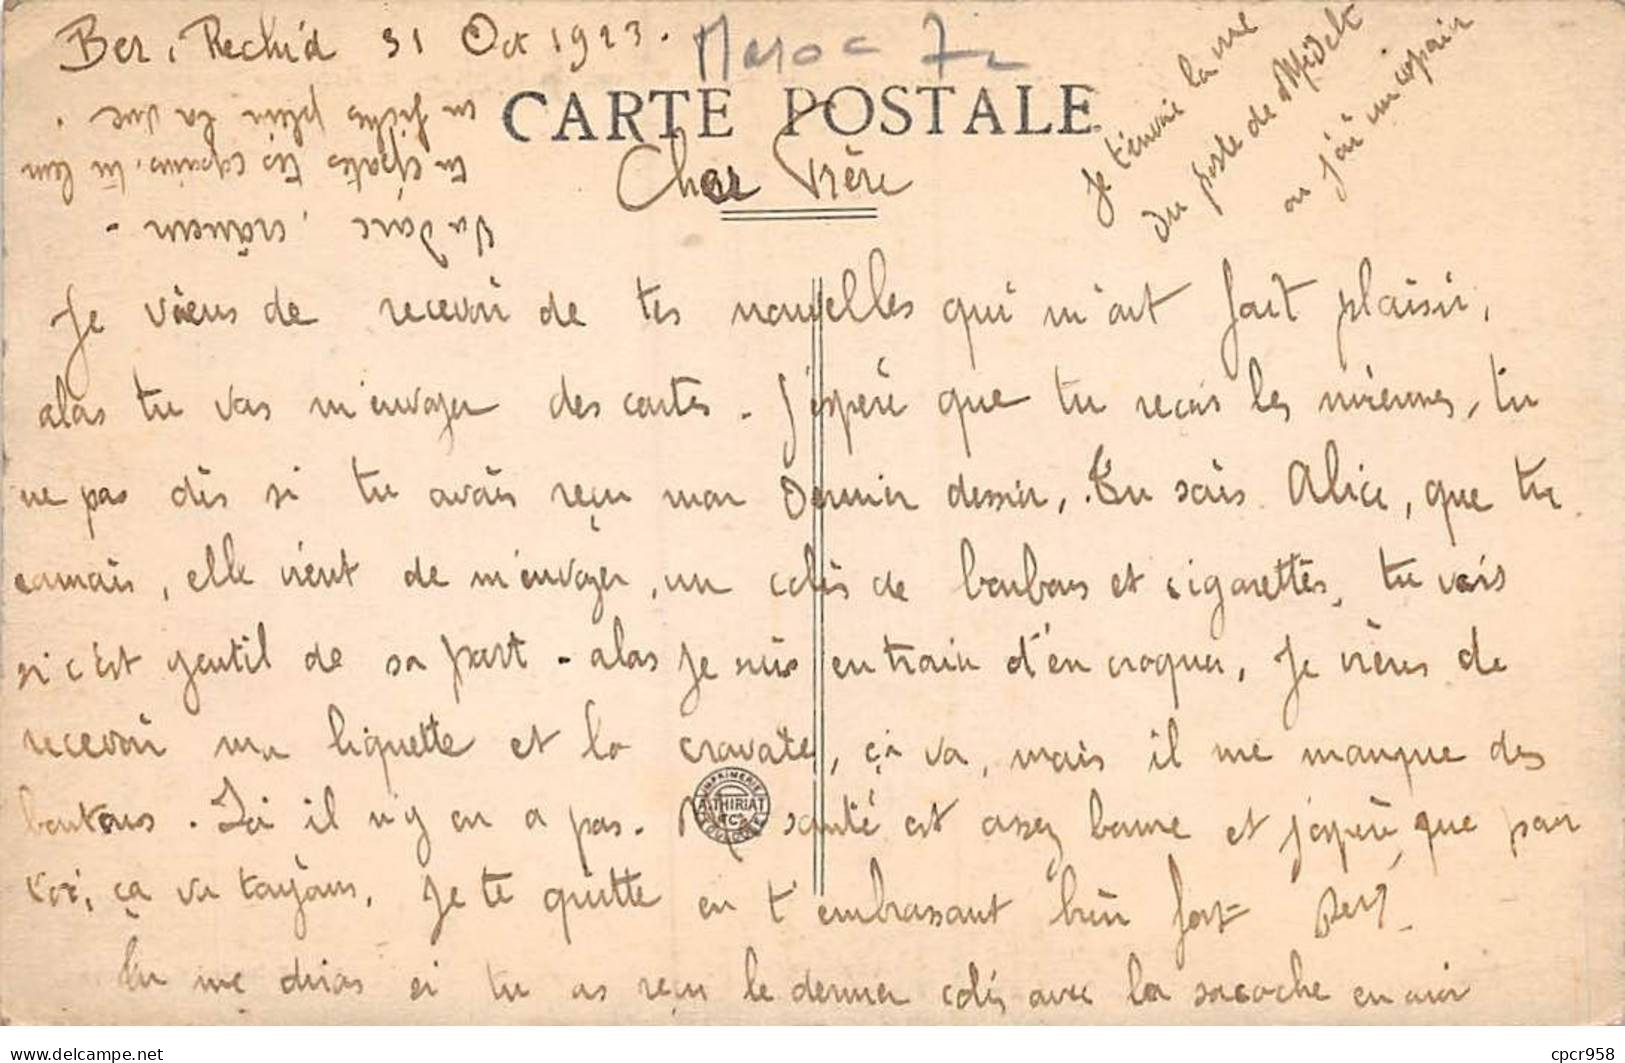 Ber. Rechid 31 Oct 1923.
Maroc
CARTE POSTALE
Cher Frère
Je t'envoie la vue
du poste de Midelt
ou j'ai un copain
Je viens de recevoir de tes nouvelles qui m'ont fait plaisir,
alas tu vas m'envoyer des cartes. J'espère que tu recois les miennes, tu
ne pas dis si tu avais reçu mon dernier dessin,. Tu sais Alice, que tu
connais, elle vient de m'envoyer, un colis de bonbons et cigarettes, tu vois
si c'est gentil de sa part. alas je suis en train d'en croquer, Je viens de
recevoir ma liquette et la cravate, ça va, mais il me manque des
boutons. Ici il n'y en a pas. Ma santé est assez bonne et j'espère que pour
toi, ça va toujours. Je te quitte en t'embrassant bien fort
Tu me diras si tu as reçu le dernier colis avec la sacoche en cuir
IMPRIMERIE
A. THIRIAT
& Cie
TOULOUSE
cpcr958